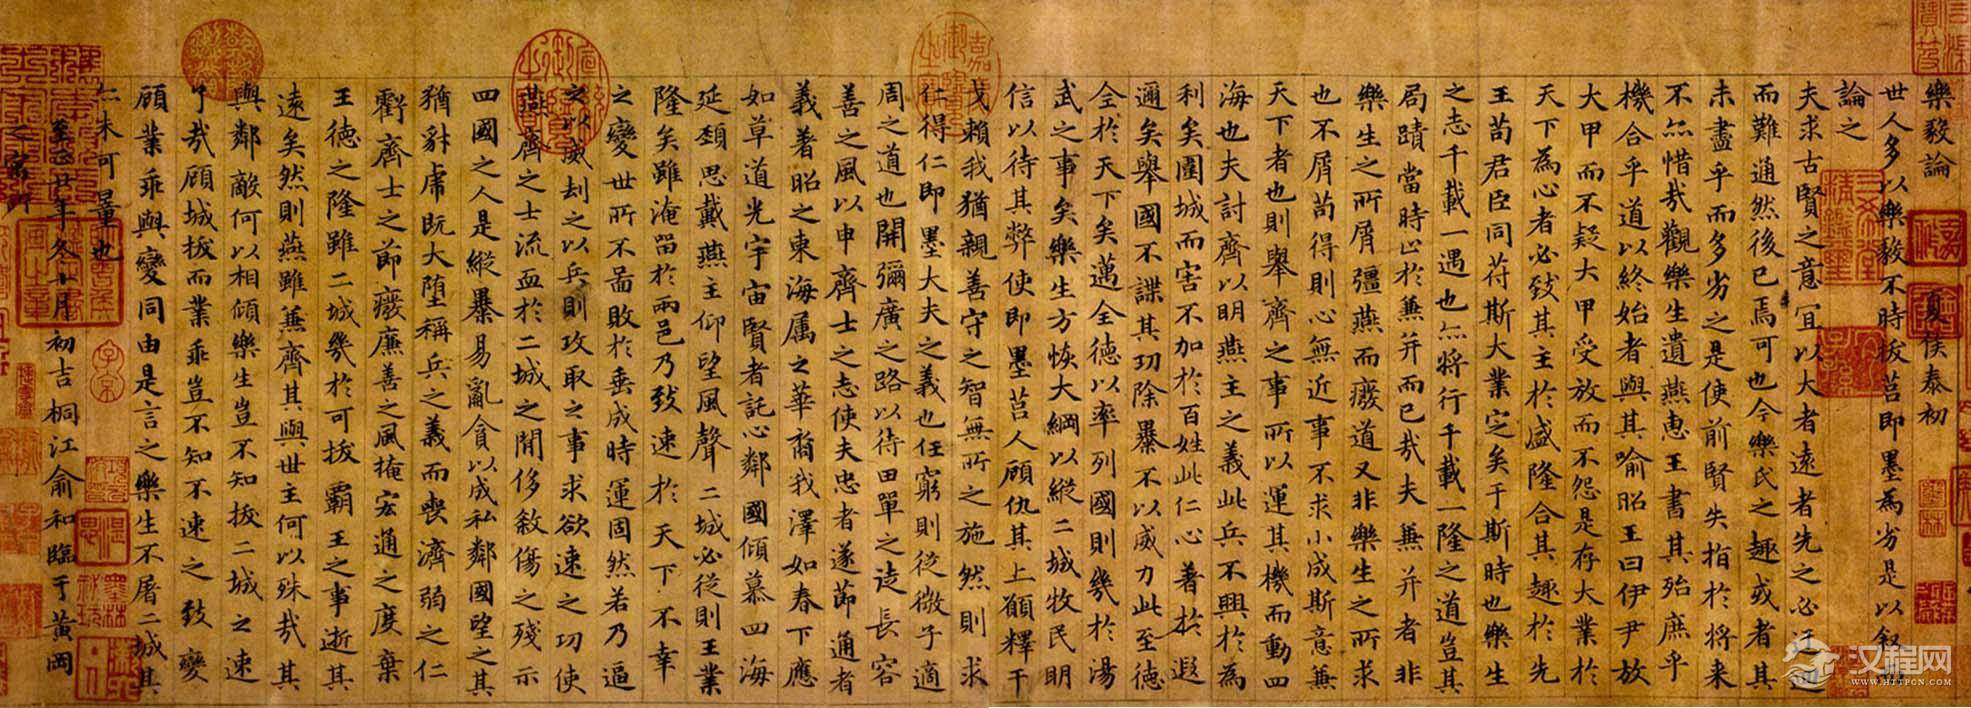 樂毅論 夏侯泰初
世人多以樂毅不時拔莒即墨為劣是以叙
論之
夫求古賢之意宜以大者遠者先之必迂迴
而難通然後已焉可也今樂氏之趣或者其
未盡乎而多劣之是使前賢失指於將来
不亦惜哉觀樂生遺燕惠王書其殆庶乎
機合乎道以終始者與其喻昭王曰伊尹放
大甲而不疑大甲受放而不怨是存大業於
天下為心者必致其主於盛隆合其趣於先
王苟君臣同苻斯大業定矣于斯時也樂生
之志千載一遇也亦將行千載一隆之道豈其
局蹟當時止於兼并而已哉夫兼并者非
樂生之所屑彊燕而廢道又非樂生之所求
也不屑苟得則心無近事不求小成斯意兼
天下者也則舉齊之事所以運其機而動四
海也夫討齊以明燕主之義此兵不興於為
利矣圍城而害不加於百姓此仁心著於遐
邇矣舉國不謀其功除暴不以威力此至德
全於天下矣邁全德以率列國則幾於湯
武之事矣樂生方恢大綱以縱二城牧民明
信以待其弊使即墨莒人顧仇其上願釋干
戈賴我猶親善守之智無所之施然則求
仁得仁即墨大夫之義也任窮則從微子適
周之道也開彌廣之路以待田單之徒長容
善之風以申齊士之志使夫忠者遂節通者
義著昭之東海属之華裔我澤如春下應
如草道光宇宙賢者託心鄰國傾慕四海
延頸思戴燕主仰望風聲二城必從則王業
隆矣雖淹留於兩邑乃致速於天下不幸
之變世所不啚敗於垂成時運固然若乃逼
之以威劫之以兵則攻取之事求欲速之功使
燕齊之士流血於二城之間侈殺傷之殘示
四國之人是縱暴易亂貪以成私鄰國望之其
猶豺虎既大墮稱兵之義而喪濟弱之仁
虧齊士之節廢廉善之風掩宏通之度棄
王德之隆雖二城幾於可拔霸王之事逝其
遠矣然則燕雖兼齊其與世主何以殊哉其
與鄰敵何以相傾樂生豈不知拔二城之速
了哉顧城拔而業乖豈不知不速之致變
顧業乖與變同由是言之樂生不屠二城其
亦未可量也
至正廿年冬十月初吉桐江俞和臨于黃岡
之寓所
汉程网
WWW.HTTPCN.COM